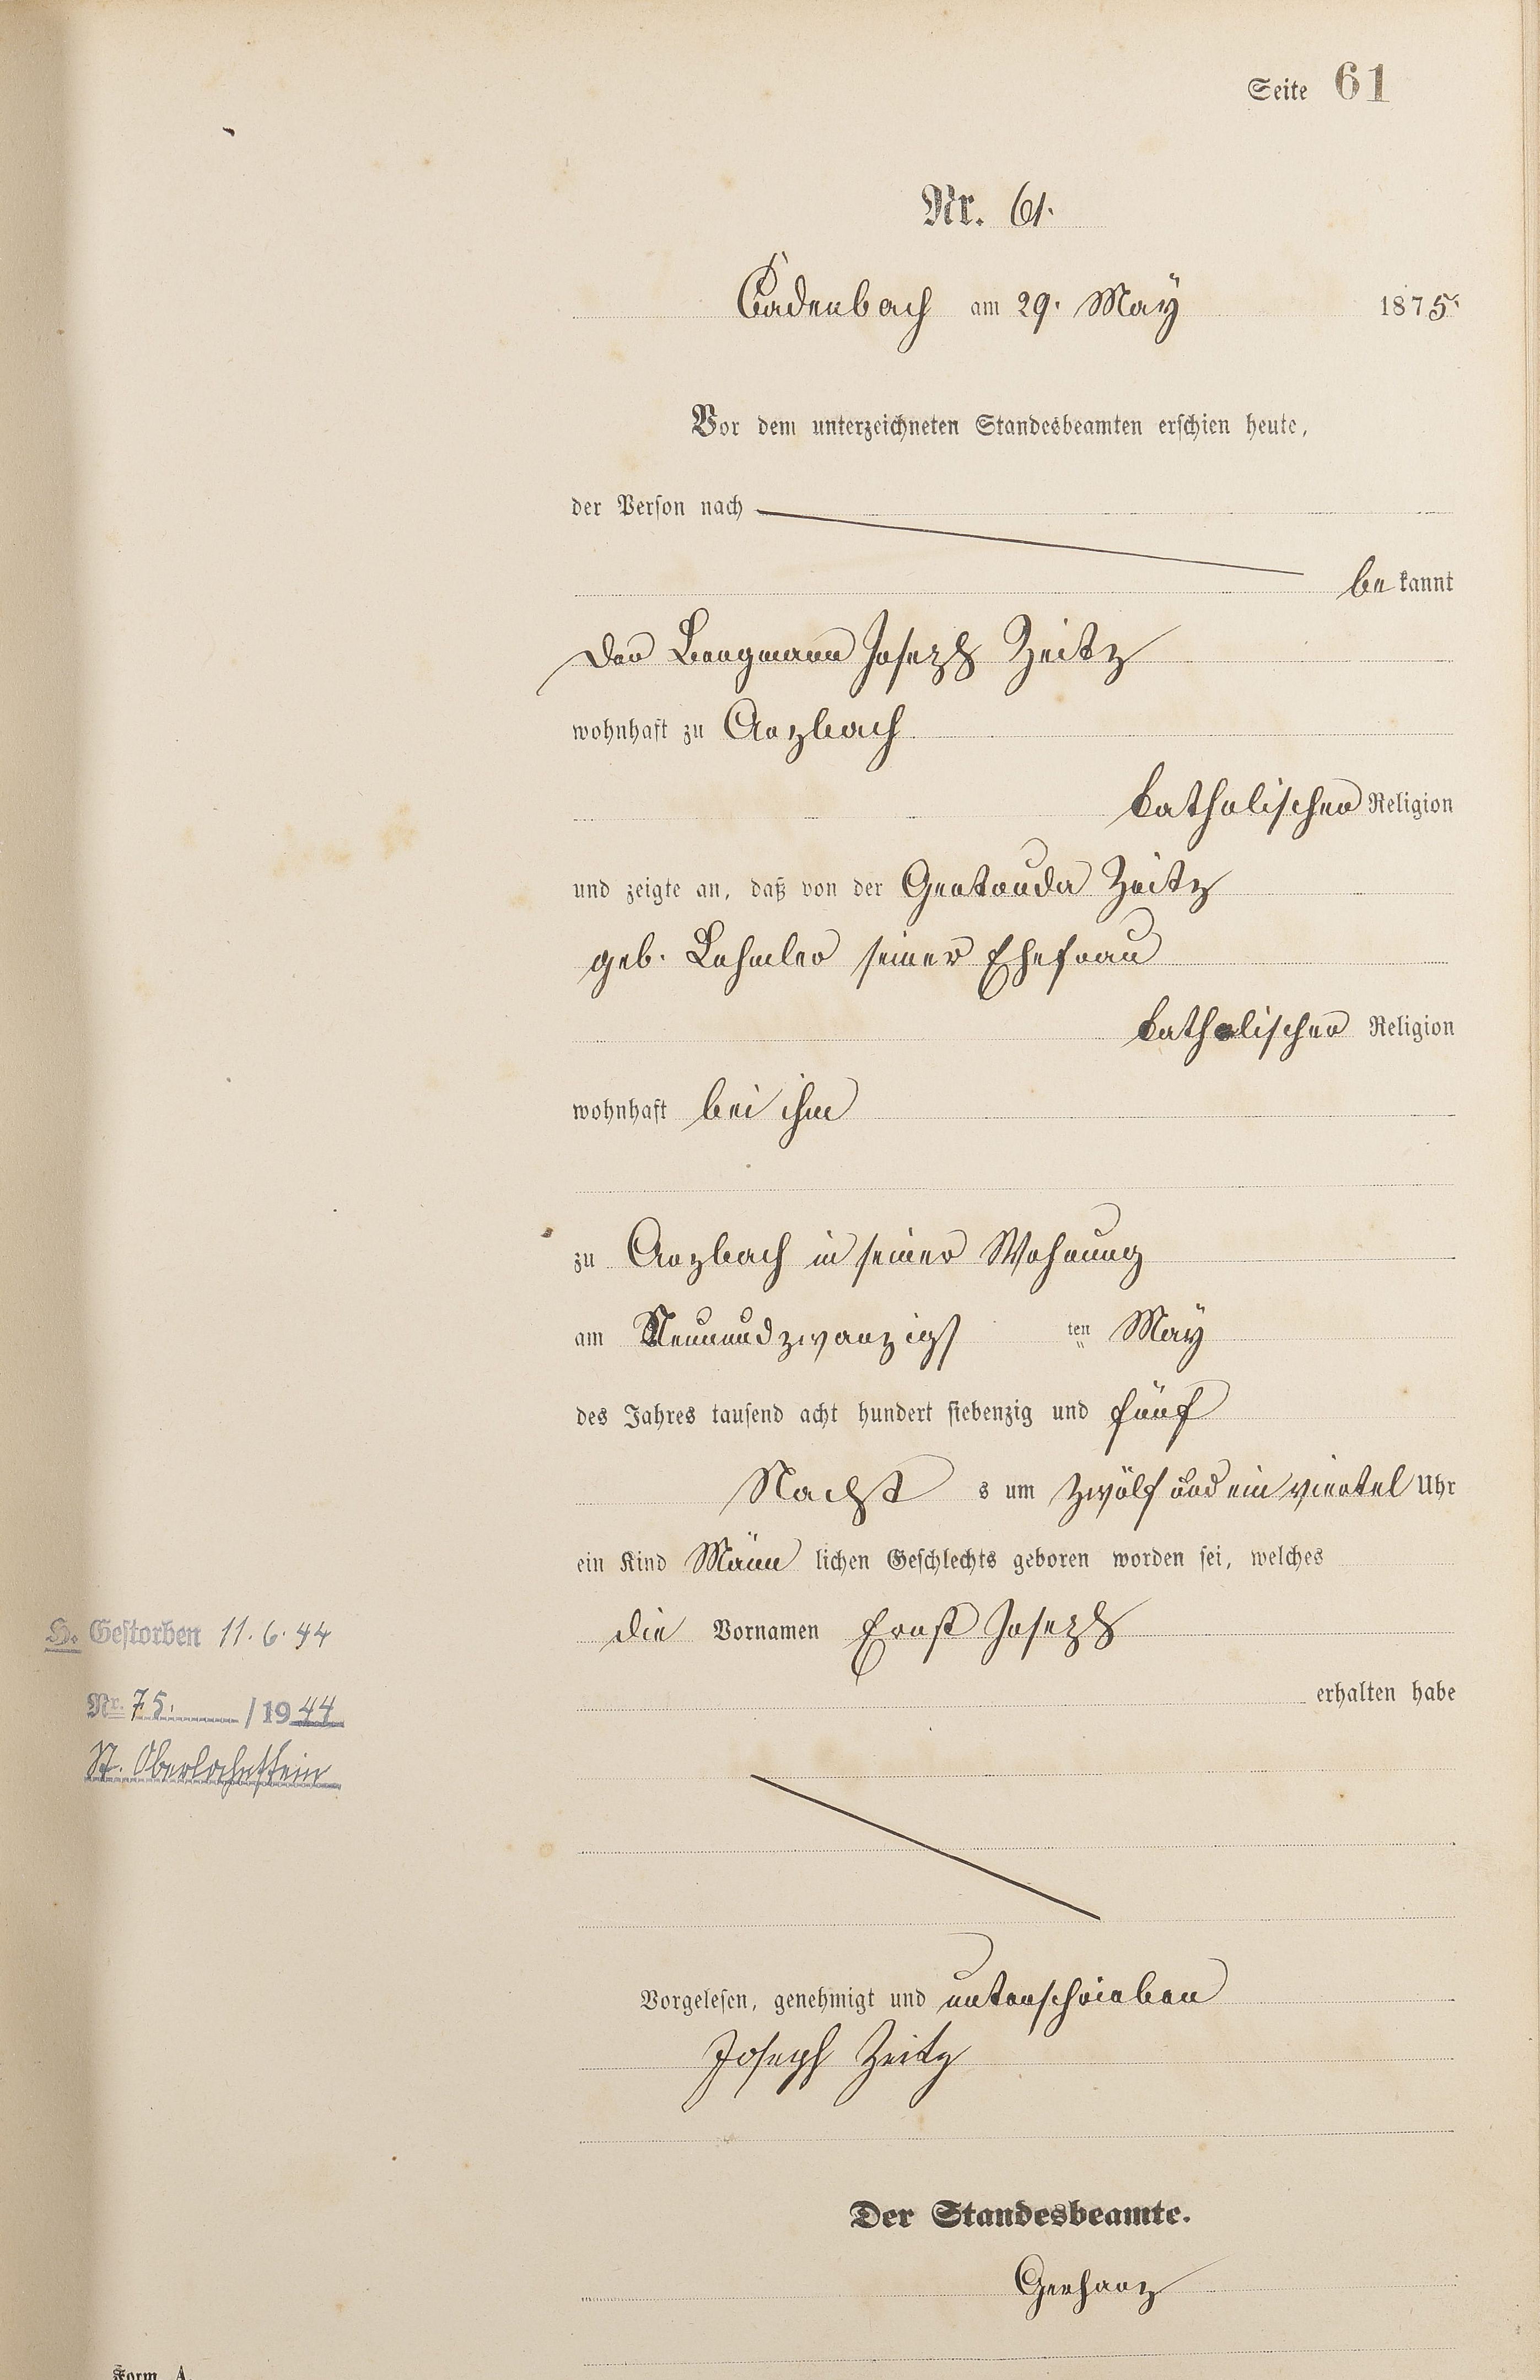 Seite 61
Nr. 61.
Cadenbach am 29. May 1875.
Vor dem unterzeichneten Standesbeamten erschien heute,
der Person nach
be kannt
Der Bergmann Joseph Zeitz
wohnhaft zu Arzbach
katholischer Religion
und zeigte an, daß von der Gertruda Zeitz
geb. Lehmler seiner Ehefrau
katholischer Religion
wohnhaft bei ihm
zu Arzbach in seiner Wohnung
am Neunundzwanzigs ten May
des Jahres tausend acht hundert siebenzig und fünf
Nacht s um zwölf und ein viertel Uhr
ein Kind Männ lichen Geschlechts geboren worden sei, welches
die Vornamen Ernst Joseph
erhalten habe
H. Gestorben 11. 6. 44
Nr. 75. /1944
St. Oberlahnstein
Vorgelesen, genehmigt und unterschrieben
Joseph Zeitz
Der Standesbeamte.
Gerharz
Form. A.